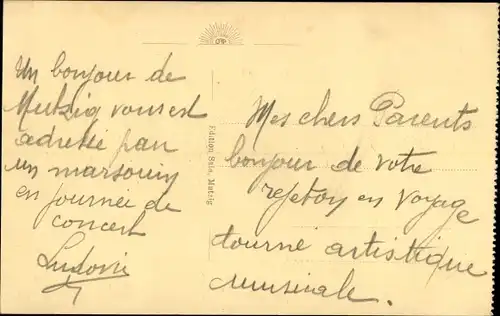 Un bonjour de
Mutzig vous est
adressé par
un marsouin
en tournée de
concert
Ludovic
Edition Sala, Mutzig
Mes chers Parents
bonjour de votre
en voyage
tourné artistique
musicale.